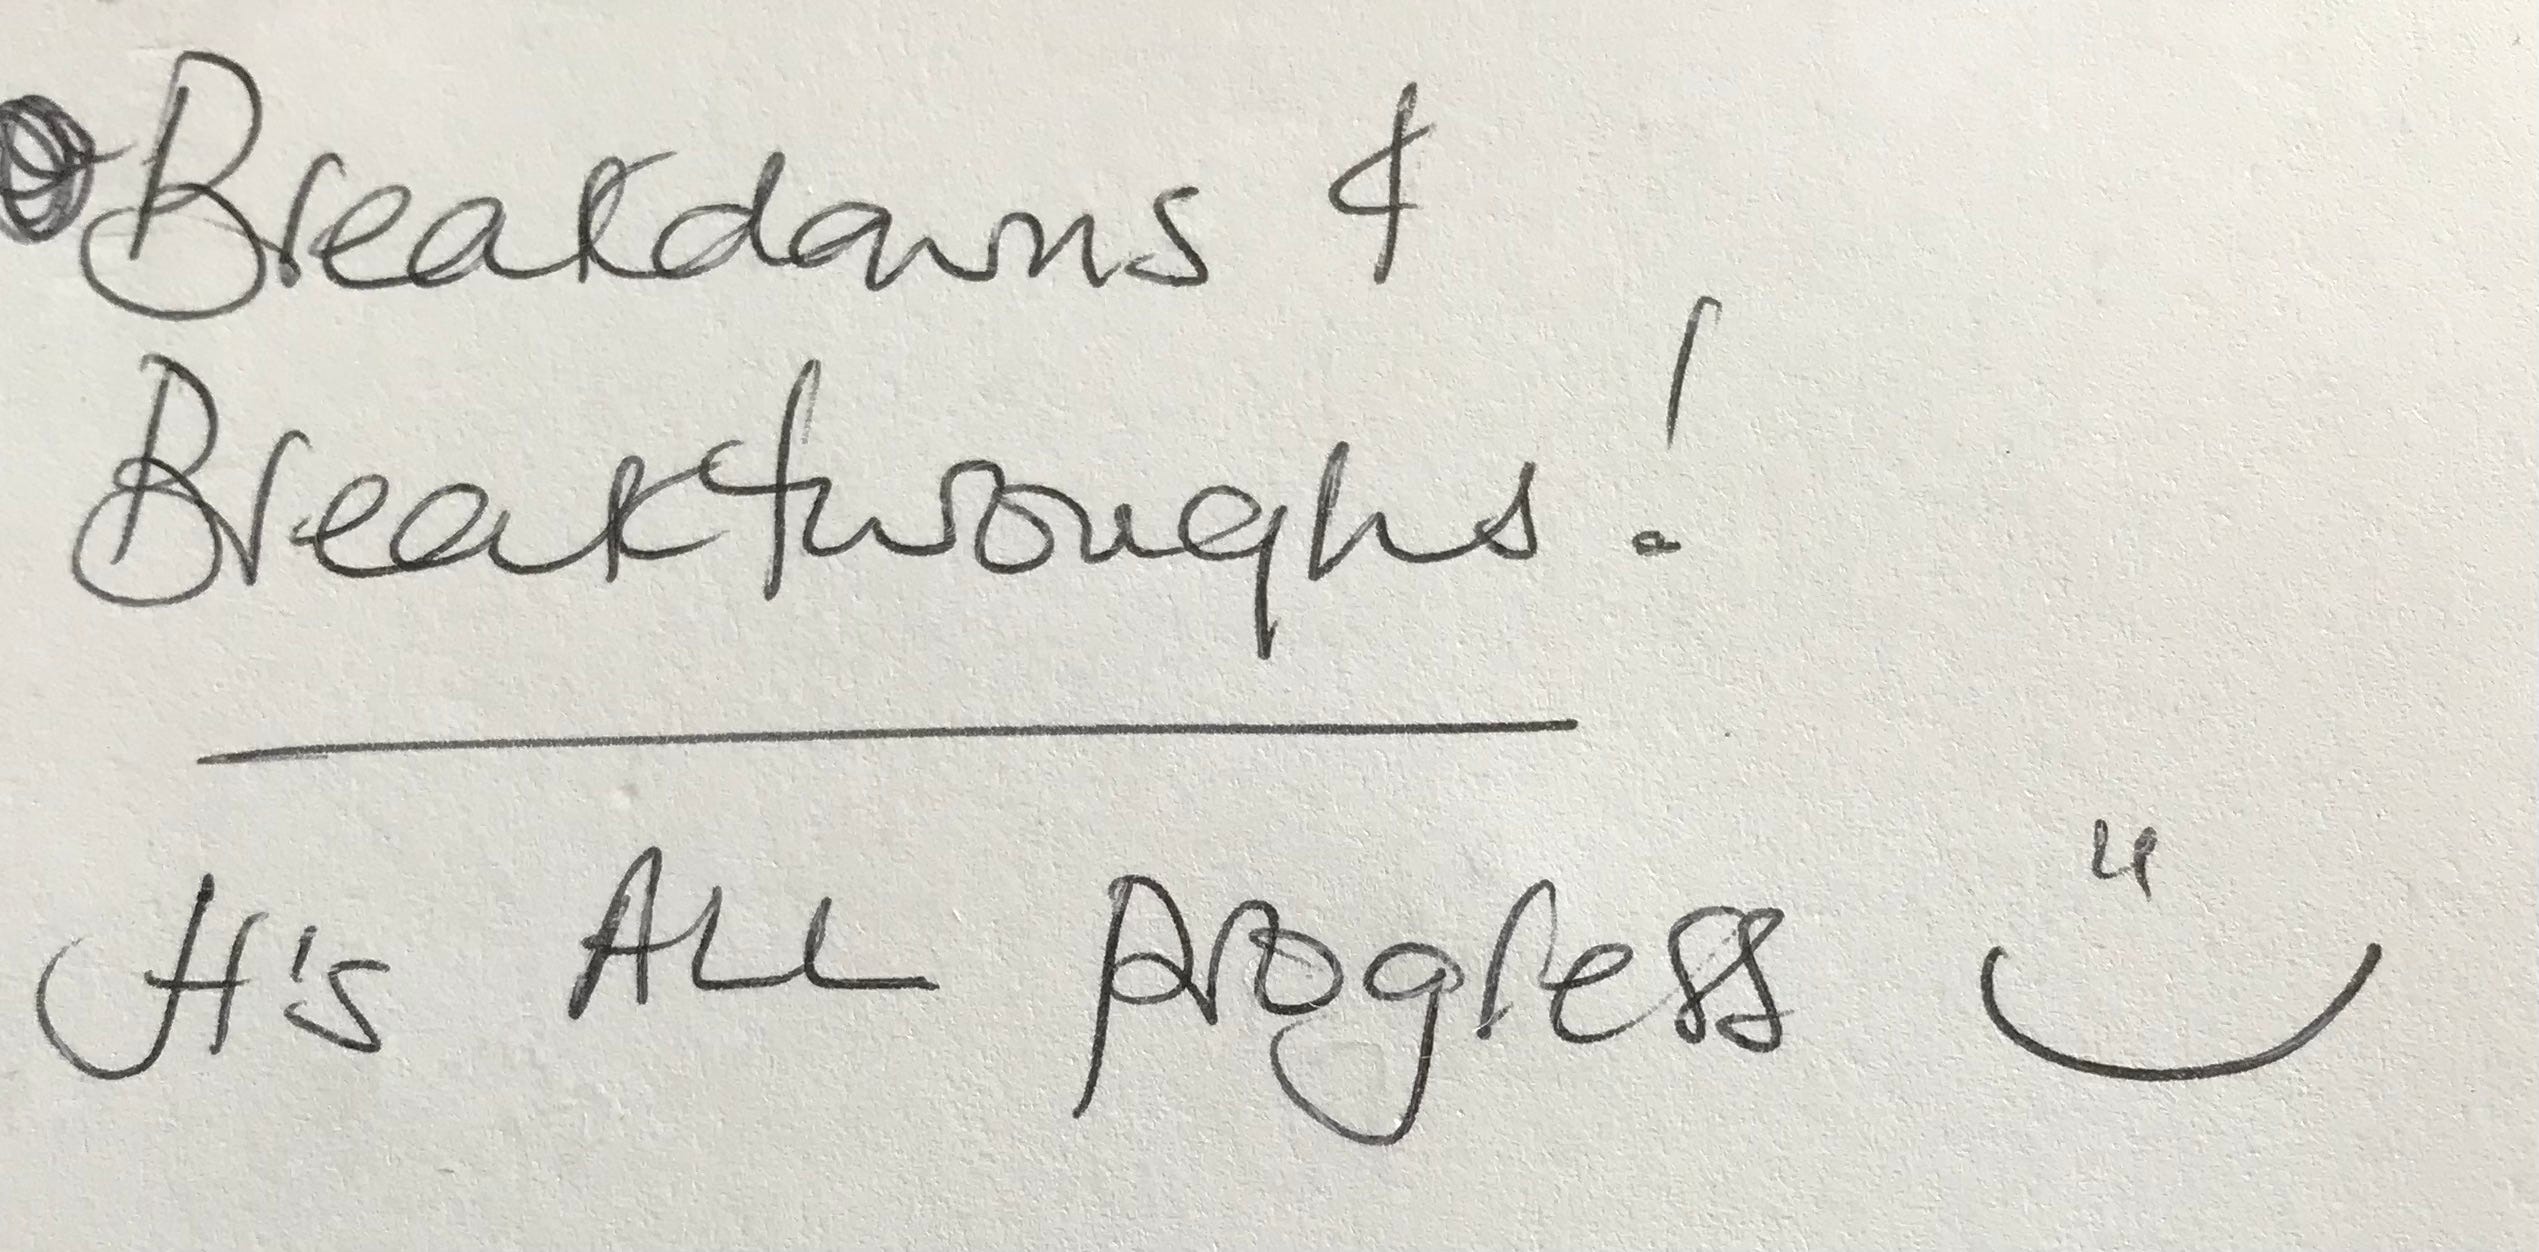 • Breakdowns &
Breakthroughs!
It's ALL progress